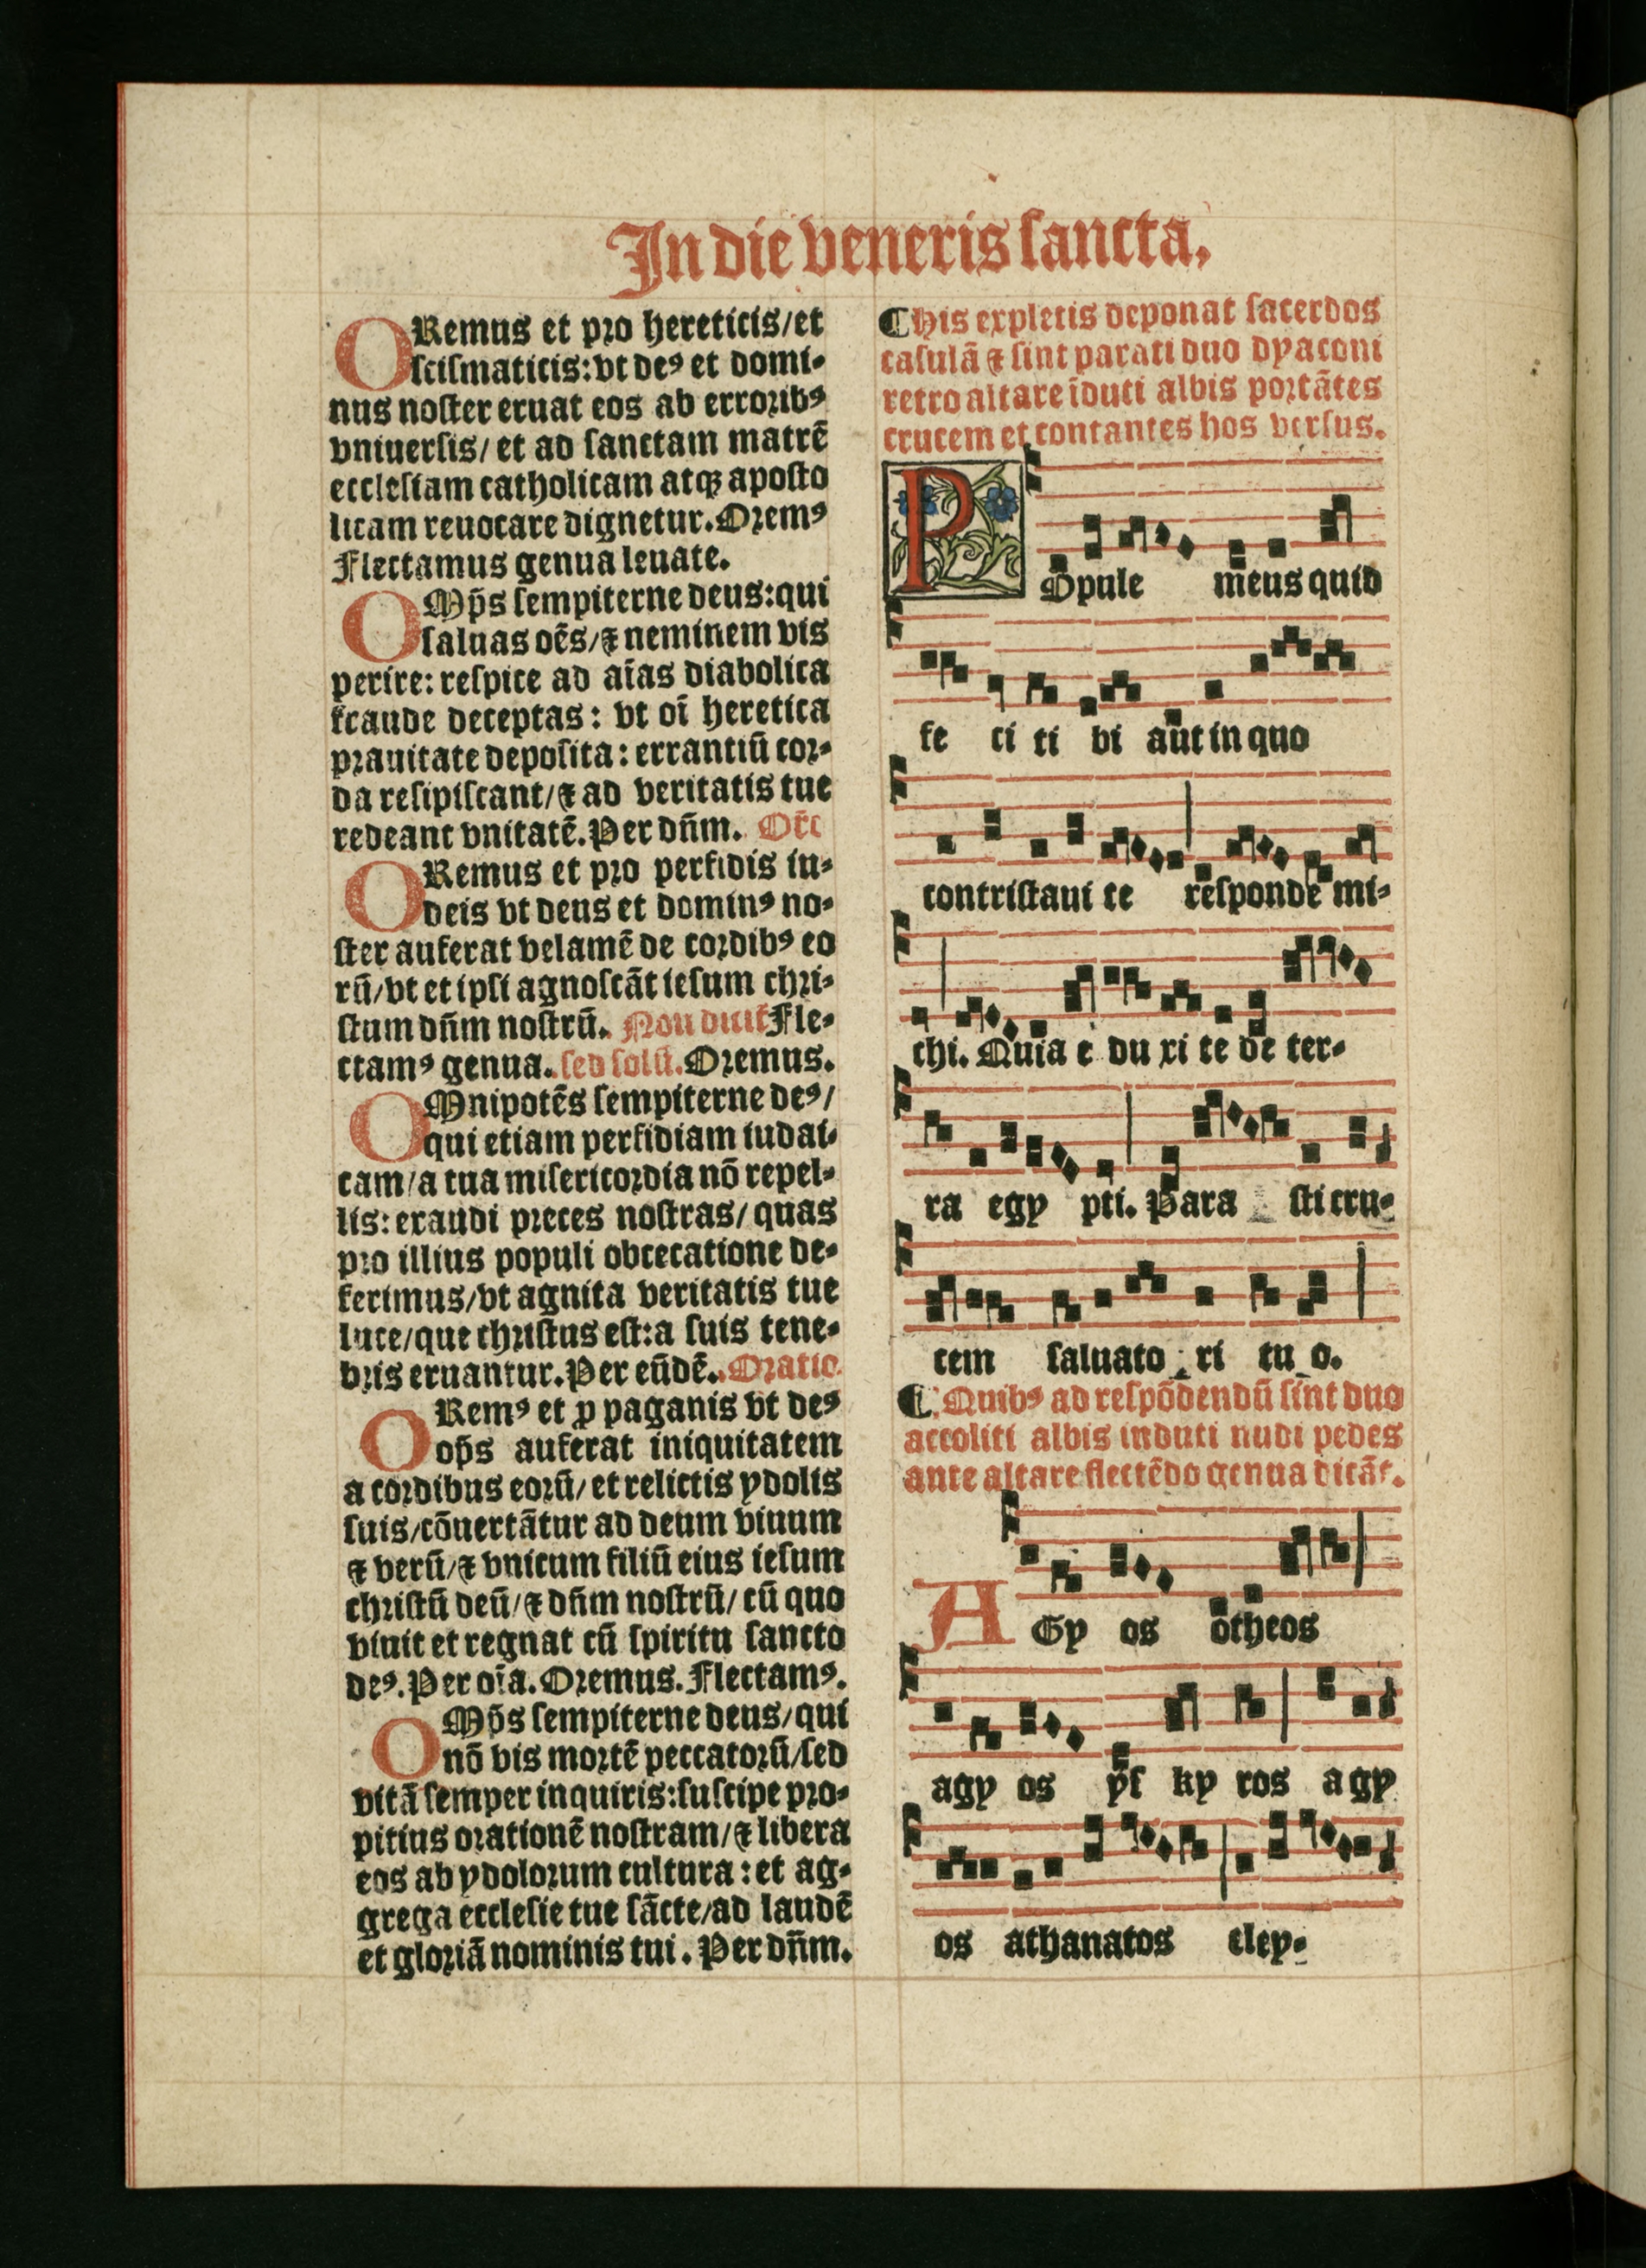 In die veneris sancta.
ORemus et pro hereticis/et
scismaticis:vt deꝰ et domi-
nus noster eruat eos ab erroribꝰ
vniuersis/et ad sanctam matrē
ecclesiam catholicam atqꝫ aposto
licam reuocare dignetur.Oremꝰ
Flectamus genua leuate.
OMp̄s sempiterne deus:qui
saluas oēs/⁊ neminem vis
perire:respice ad aīas diabolica
fraude deceptas: vt oī heretica
prauitate deposita:errantiū cor-
da resipiscant/⁊ ad veritatis tue
redeant vnitatē.Per dn̄m. Or̄c
ORemus et pro perfidis iu-
deis vt deus et dominꝰ no-
ster auferat velamē de cordibꝰ eo
rū/vt et ipsi agnoscāt iesum chri-
stum dn̄m nostrū. Non dicit̄ Fle-
ctamꝰ genua.sed solū.Oremus.
OMnipotēs sempiterne deꝰ/
qui etiam perfidiam iudai-
cam/a tua misericordia nō repel-
lis:exaudi preces nostras/quas
pro illius populi obcecatione de-
ferimus/vt agnita veritatis tue
luce/que christus est:a suis tene-
bris eruantur.Per eūdē. Oratio
ORemꝰ et ꝓ paganis vt deꝰ
op̄s auferat iniquitatem
a cordibus eorū/et relictis ydolis
suis/cōuertātur ad deum viuum
⁊ verū/⁊ vnicum filiū eius iesum
christū deū/⁊ dn̄m nostrū/cū quo
viuit et regnat cū spiritu sancto
deꝰ.Per oīa.Oremus.Flectamꝰ.
OMp̄s sempiterne deus/qui
nō vis mortē peccatorū/sed
vitā semper inquiris:suscipe pro-
pitius orationē nostram/⁊ libera
eos ab ydolorum cultura:et ag-
grega ecclesie tue sācte/ad laudē
et gloriā nominis tui.Per dn̄m.
¶His expletis deponat sacerdos
casulā ⁊ sint parati duo dyaconi
retro altare īduti albis portātes
crucem et contantes hos versus.
POpule meus quid
fe ci ti bi aut in quo
contristaui te responde mi-
chi. Quia e du xi te de ter-
ra egy pti. Para sti cru-
cem saluato ri tu o.
¶Quibꝰ ad respōdendū sint duo
accoliti albis induti nudi pedes
ante altare flectēdo genua dicāt.
AGy os otheos
agy os ys ky ros a gy
os athanatos eley-